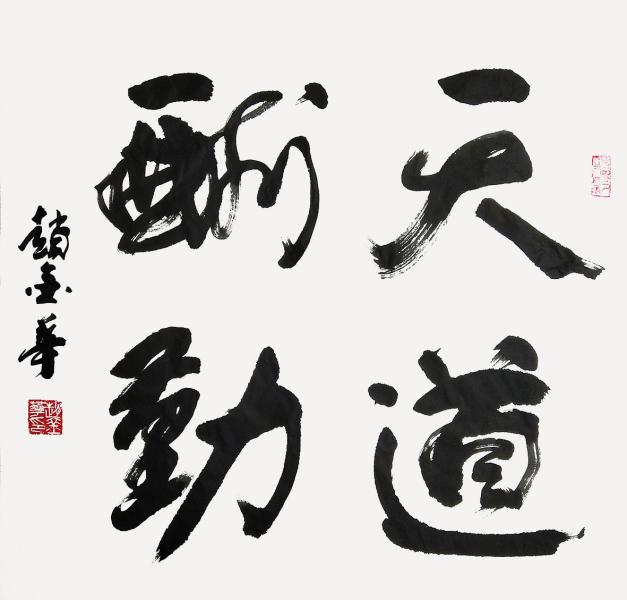 天道
酬勤
趙金華